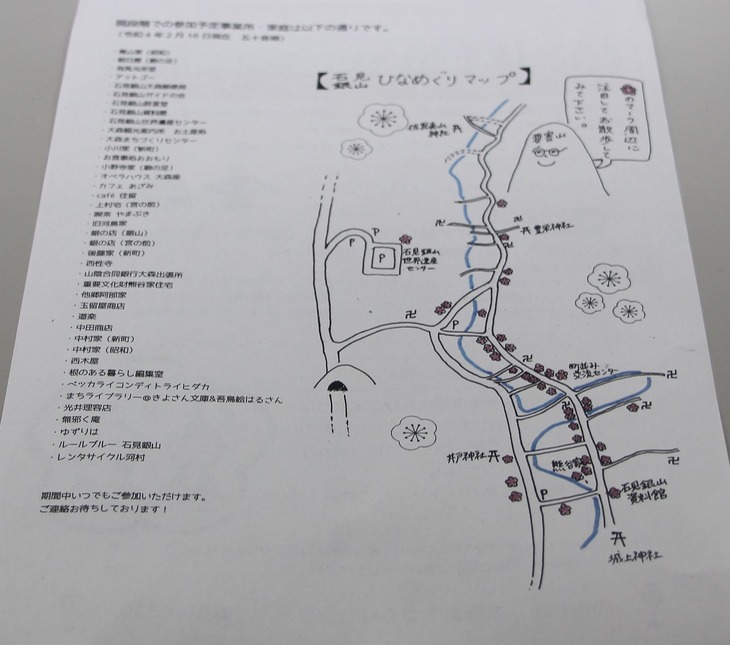 現段階での参加予定事業所・家庭は以下の通りです。
(令和4年2月16日現在 五十音順)
・青山家(昭和)
・朝日屋(駒の足)
・有馬光栄堂
・アットゴー
・石見銀山大森郵便局
・石見銀山ガイドの会
・石見銀山群言堂
・石見銀山資料館
・石見銀山世界遺産センター
・大森観光案内所 お土産処
・大森まちづくりセンター
・小川家(新町)
・お食事処おおもり
・小野寺家(駒の足)
・オペラハウス 大森座
・カフェ あざみ
・café 住留
・上村宅(宮の前)
・喫茶 やまぶき
・旧河島家
・銀の店(銀山)
・銀の店(宮の前)
・後藤家(新町)
・西性寺
・山陰合同銀行大森出張所
・重要文化財熊谷家住宅
・他郷阿部家
・玉留屋商店
・道楽
・中田商店
・中村家(新町)
・中村家(昭和)
・西木屋
・根のある暮らし編集室
・ベッカライコンディトライヒダカ
・まちライブラリー@きよさん文庫&吾亀絵はるさん
・光井理容店
・無邪く庵
・ゆずりは
・ルールブルー 石見銀山
・レンタサイクル河村
期間中いつでもご参加いただけます。
ご連絡お待ちしております!
【石見銀山 ひなめぐりマップ】
のマーク周辺に
注目してお散歩して
みて下さい。
佐毘売山
神社
卍
豊栄神社
卍
P
P
P
石見銀山
世界遺産
センター
卍
P
卍
町並み
交流センター
卍
卍
卍
井戸神社
熊谷家
卍
P
石見銀山
資料館
城上神社